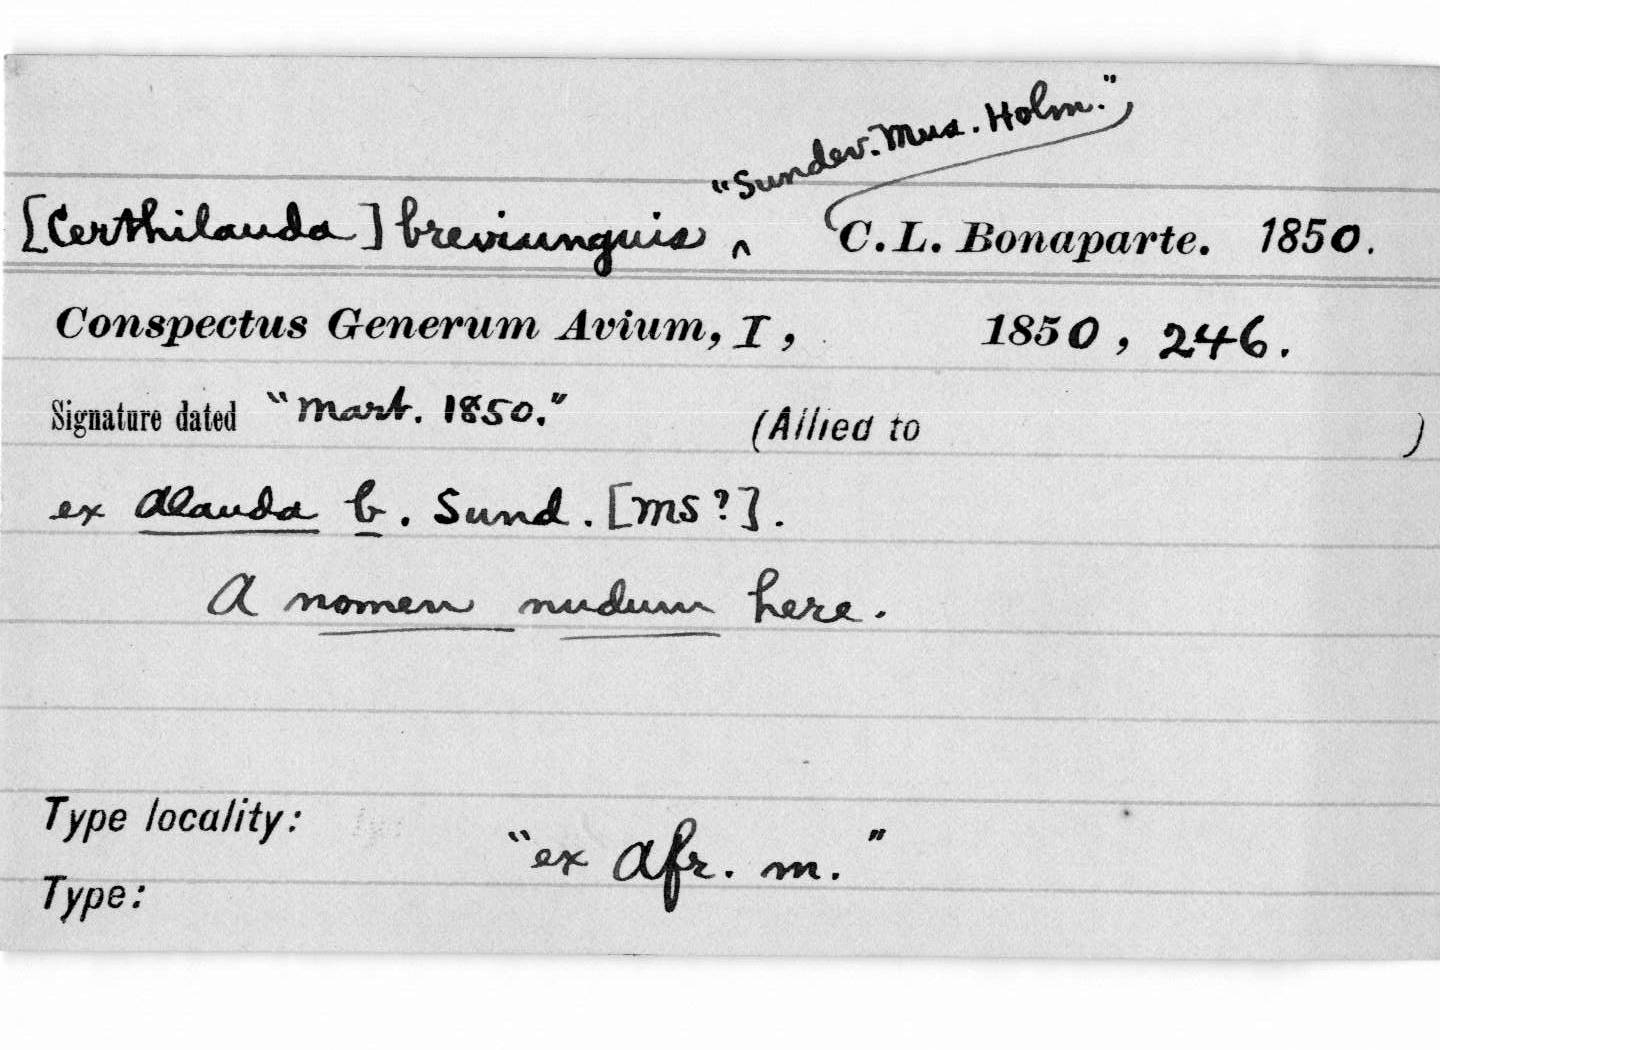 "Sundev. Mus. Holm."
[Certhilauda] breviunguis ^ C.L. Bonaparte. 1850.
Conspectus Generum Avium, I, 1850, 246.
Signature dated "Mart. 1850." (Allied to )
ex Alauda b. Sund. [MS?].
A nomen nudum here.
Type locality:
"ex Afr. m."
Type: